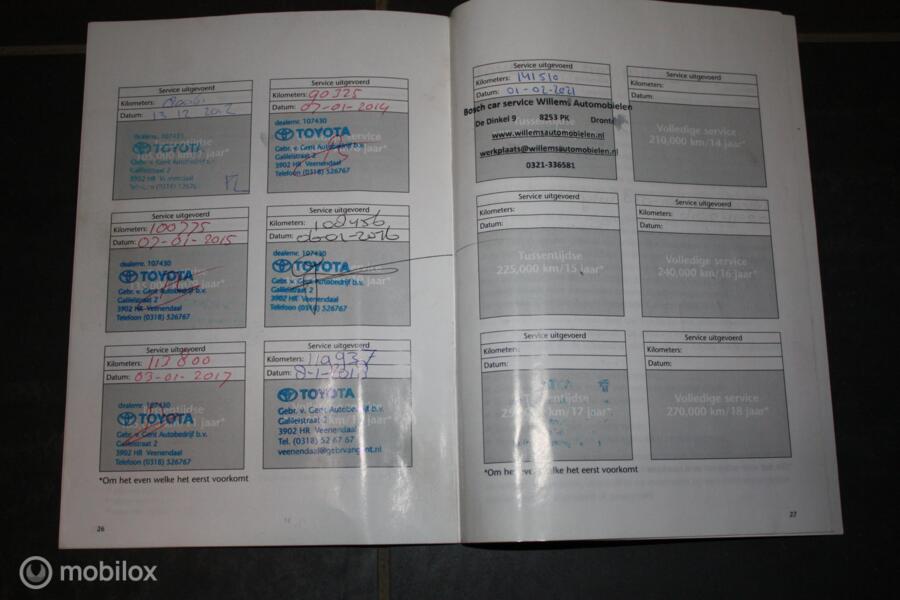 Service uitgevoerd
Kilometers:
Datum: 13 12 2012
dealernr. 107431
TOYOTA
105,000 km/7 jaar*
Gebr. v. Gent Autobedrijf b.v.
Galileistraat 2
3902 HR Veenendaal
Service uitgevoerd
Kilometers: 90325
Datum: 07-01-2014
dealernr. 107430
TOYOTA
Gebr. v. Gent Autobedrijf b.v.
Galileistraat 2
3902 HR Veenendaal
Telefoon (0318) 526767
Service uitgevoerd
Kilometers: 100775
Datum: 07-01-2015
dealernr. 107430
TOYOTA
Gebr. v. Gent Autobedrijf b.v.
Galileistraat 2
3902 HR Veenendaal
Telefoon (0318) 526767
Service uitgevoerd
Kilometers: 108456
Datum: 06-01-2016
dealernr. 107430
TOYOTA
Gebr. v. Gent Autobedrijf b.v.
Galileistraat 2
3902 HR Veenendaal
Telefoon (0318) 526767
Service uitgevoerd
Kilometers: 113800
Datum: 03-01-2017
Tussentijdse
dealernr. 107430
TOYOTA
Gebr. v. Gent Autobedrijf b.v.
Galileistraat 2
3902 HR Veenendaal
Telefoon (0318) 526767
Service uitgevoerd
Kilometers: 119937
Datum: 8-1-2018
TOYOTA
Gebr. v. Gent Autobedrijf b.v.
Galileistraat 2
3902 HR Veenendaal
Tel. (0318) 52 67 67
veenendaal@gebrvangent.nl
*Om het even welke het eerst voorkomt
26
Service uitgevoerd
Kilometers: 141510
Datum: 01-02-2021
Bosch car service Willems Automobielen
De Dinkel 9 8253 PK Dronten
Tussentijdse
www.willemsautomobielen.nl
werkplaats@willemsautomobielen.nl
0321-336581
Service uitgevoerd
Kilometers:
Datum:
Volledige service
210,000 km/14 jaar*
Service uitgevoerd
Kilometers:
Datum:
Tussentijdse
225,000 km/15 jaar*
Service uitgevoerd
Kilometers:
Datum:
Volledige service
240,000 km/16 jaar*
Service uitgevoerd
Kilometers:
Datum:
Tussentijdse
km/17 jaar*
Service uitgevoerd
Kilometers:
Datum:
Volledige service
270,000 km/18 jaar*
*Om het even welke het eerst voorkomt
27
mobilox